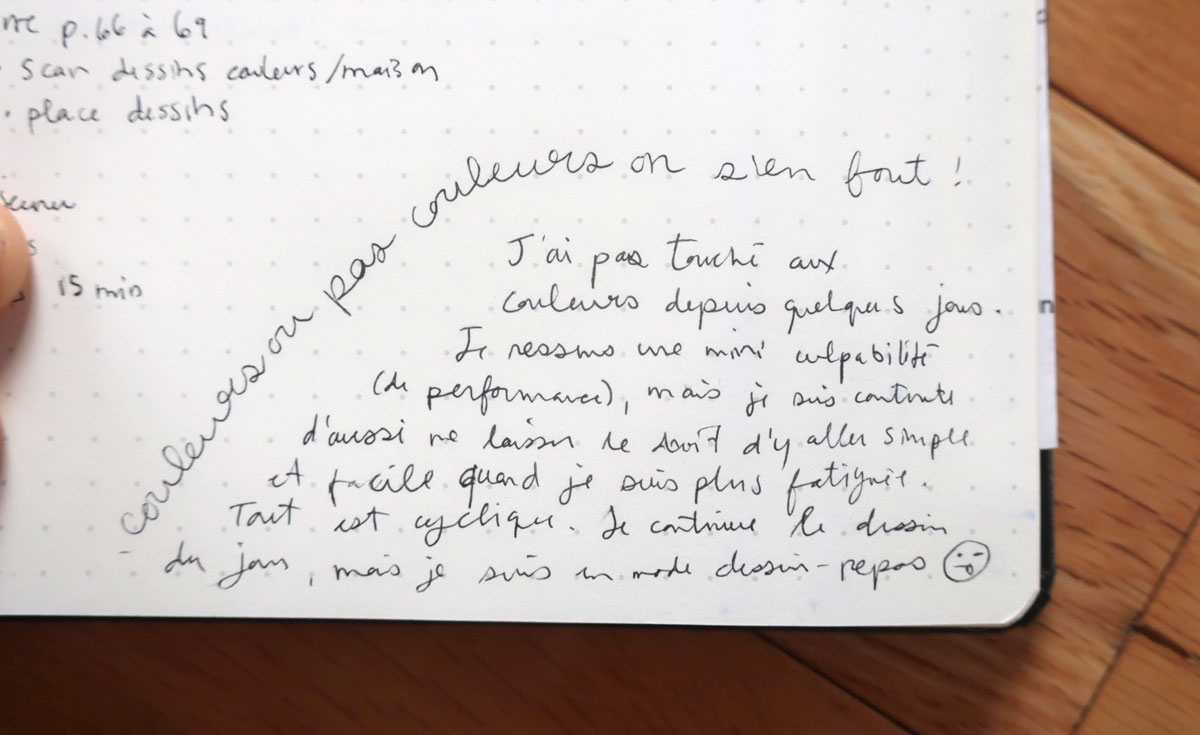 p. 66 à 69
· scan dessins couleurs/maison
· place dessins
15 min
couleurs ou pas couleurs on s'en fout !
J'ai pas touché aux
couleurs depuis quelques jours.
Je ressens une mini culpabilité
(de performance), mais je suis contente
d'aussi me laisser le droit d'y aller simple
et facile quand je suis plus fatiguée.
Tout est cyclique. Je continue le dessin
du jour, mais je suis en mode dessin-repos